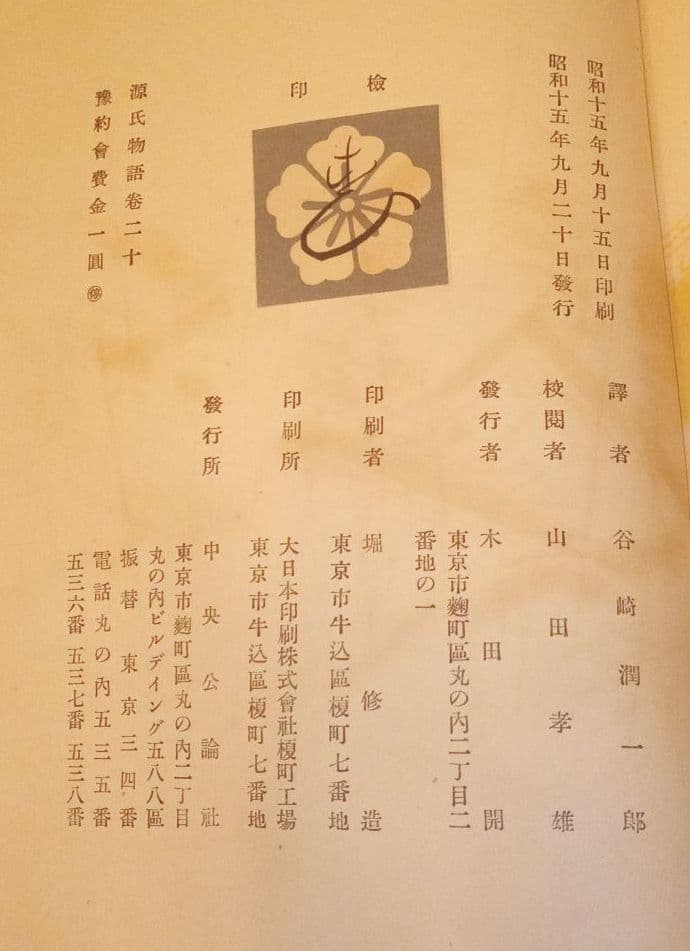 昭和十五年九月十五日印刷
昭和十五年九月二十日發行
檢印
源氏物語卷二十
豫約會費金一圓 ㊡
譯者 谷崎潤一郎
校閲者 山田孝雄
發行者 木田開
東京市麴町區丸の內二丁目二
番地の一
印刷者 堀修造
東京市牛込區榎町七番地
印刷所 大日本印刷株式會社榎町工場
東京市牛込區榎町七番地
發行所 中央公論社
東京市麴町區丸の內二丁目
丸の內ビルデイング五八八區
振替東京三四番
電話丸の內五三五番
五三六番 五三七番 五三八番